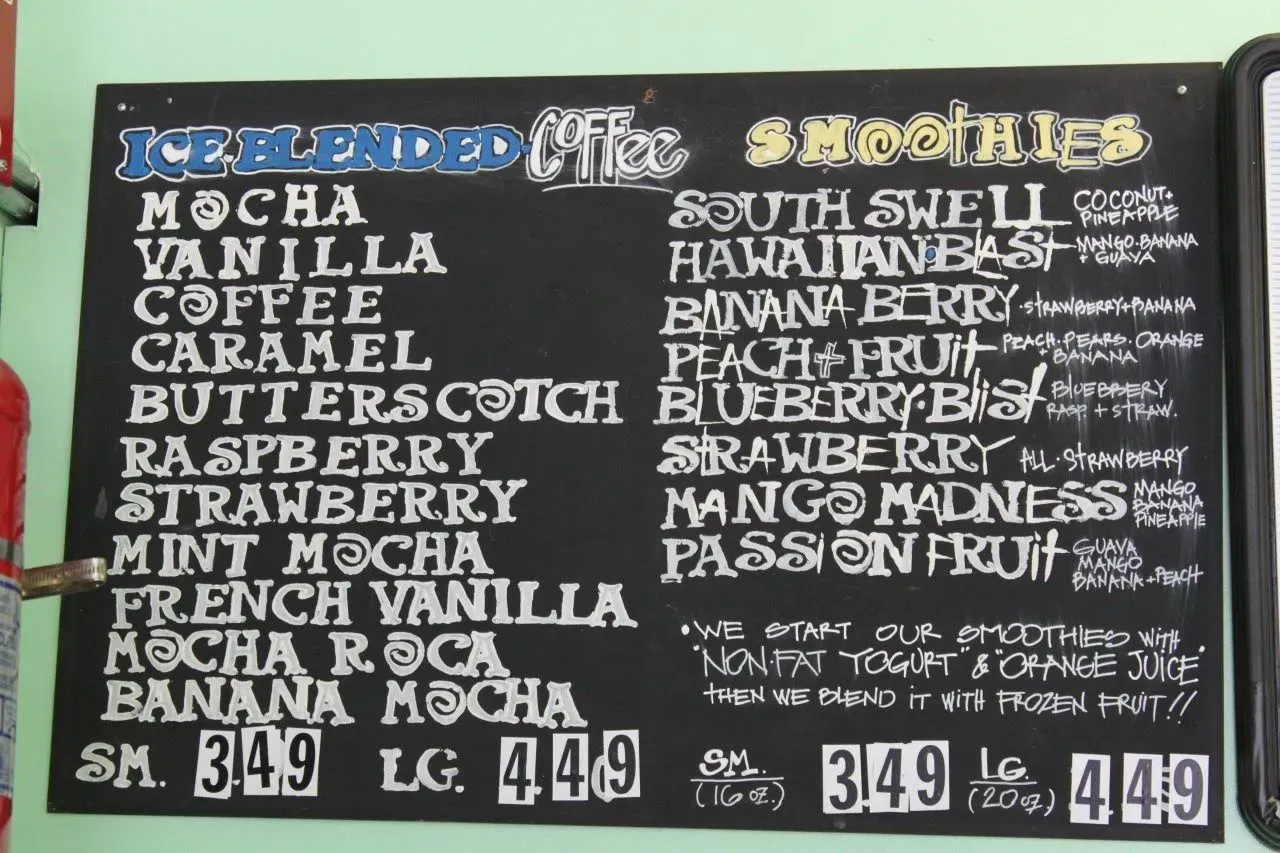 ICE·BLENDED·COFFee
MOCHA
VANILLA
COFFEE
CARAMEL
BUTTERSCOTCH
RASPBERRY
STRAWBERRY
MINT MOCHA
FRENCH VANILLA
MOCHA ROCA
BANANA MOCHA
SM. 3.49 LG. 4.49
SMOOtHIES
SOUTH SWELL COCONUT+
PINEAPPLE
HAWAIIAN·BLASt MANGO·BANANA
+ GUAVA
BANANA BERRY·STRAWBERRY+BANANA
PEACH+FRUit PEACH·PEARS·ORANGE
+ BANANA
BLUEBERRY·BliSt BLUEBBERY
RASP. + STRAW.
StRAWBERRY ALL·STRAWBERRY
MANGO MADNESS MANGO
BANANA
PINEAPPLE
PASSiON FRUit GUAVA
MANGO
BANANA+PEACH
•WE START OUR SMOOTHIES WITH
"NON·FAT YOGURT" & "ORANGE JUICE"
tHEN WE BLEND IT WITH FROZEN FRUIT!!
SM. 3.49 LG. 4.49
(16 oz.) (20 oz.)